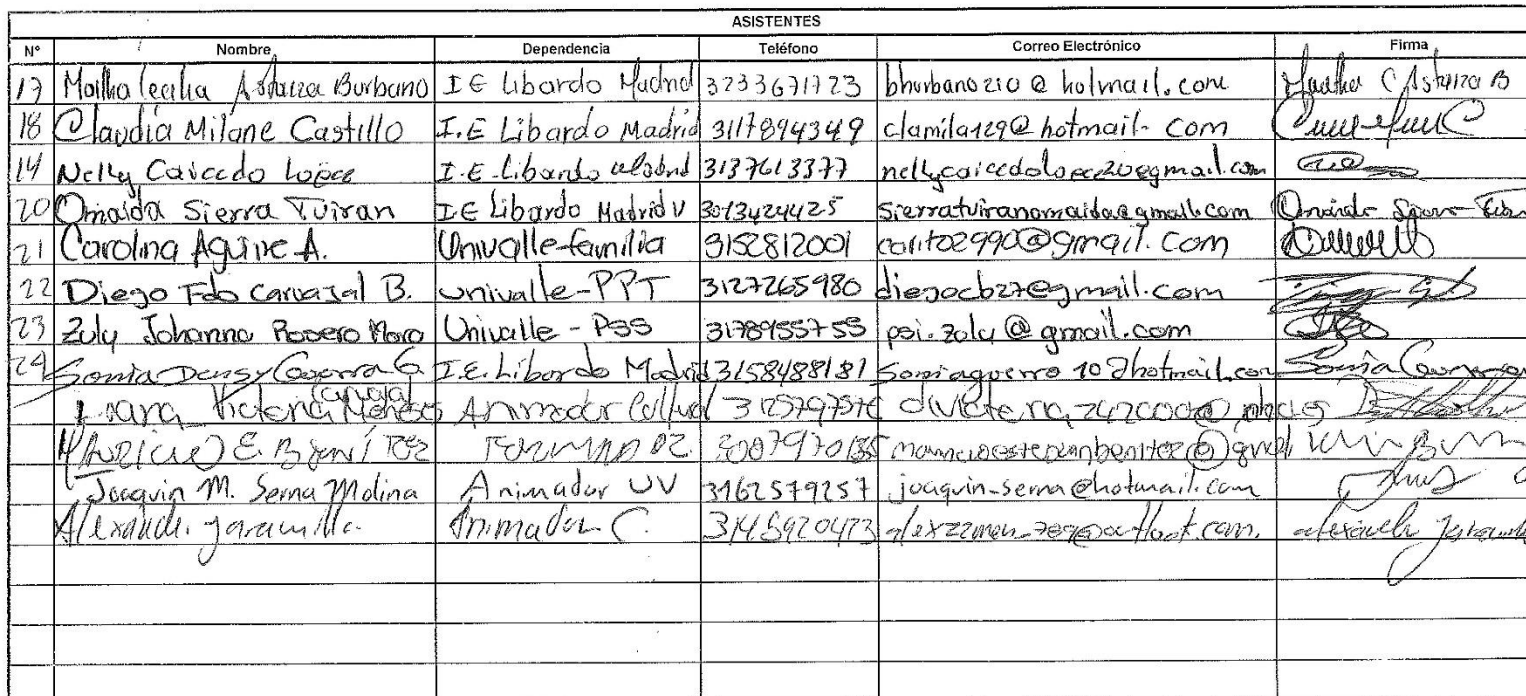 ASISTENTES
N° Nombre Dependencia Teléfono Correo Electrónico Firma
17 Martha Cecilia Astaiza Burbano I E Libardo Madrid 3233671723 bhurbano210@hotmail.com Martha C Astaiza B
18 Claudia Milane Castillo I.E Libardo Madrid 3117894349 clamila129@hotmail.com
19 Nelly Caicedo Lopez I.E. Libardo Madrid 3137613377 nellycaicedolopez20@gmail.com
20 Omaida Sierra Tuiran I E Libardo Madrid V 3013424425 sierratuiranomaida@gmail.com Omaida Sierra
21 Carolina Aguirre A. Univalle-familia 3152812001 carito2990@gmail.com
22 Diego Fdo Carvajal B. Univalle-PPT 3127265980 diegocb27@gmail.com
23 Zuly Johanna Rosero Mora Univalle - PSS 3178955755 psi.zuly@gmail.com
24 Sonia Deasy Guerra G. I.E. Libardo Madrid 3158488181 soniaguerro10@hotmail.com Sonia Guerra
Victoria Carvajal Animador Cultural
Mauricio E. Benítez 3007970135 mauricioestebanbenitez@gmail
Joaquin M. Serna Molina Animador UV 3162579257 joaquin-serna@hotmail.com
Alexander Jaramillo Animador C.